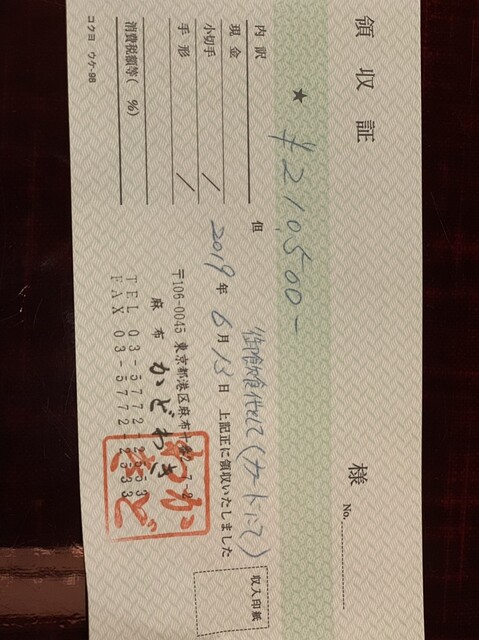 領収証
様
No.
★ ¥210,500-
但 御飲食代として(カードにて)
内訳
現金
小切手 /
手形 /
消費税額等( %)
2019年6月13日 上記正に領収いたしました
収入印紙
〒106-0045 東京都港区麻布十番2-7-2
麻布 かどわき
TEL 03-5772-2553
FAX 03-5772-2533
かどわき
コクヨ ウケ-98